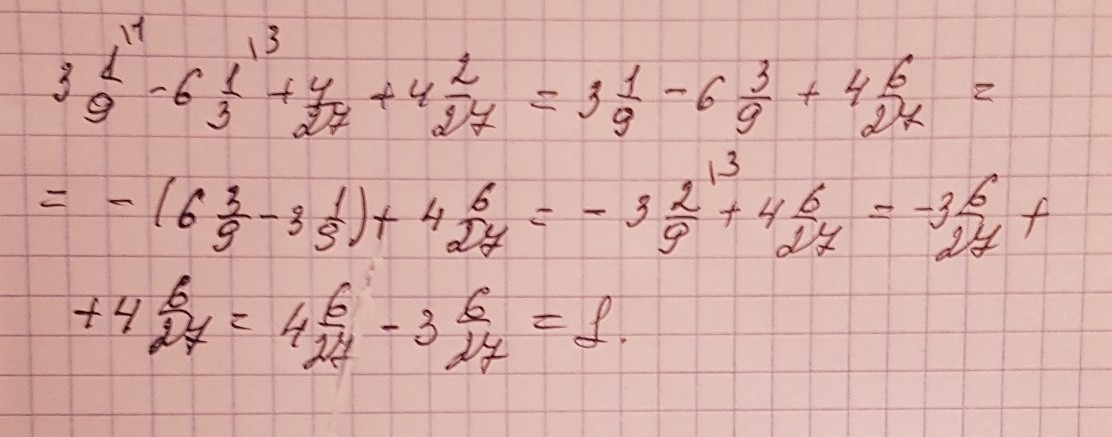 3 1/9 \1 - 6 1/3 \3 + 4/27 + 4 2/27 = 3 1/9 - 6 3/9 + 4 6/27 =
= - (6 3/9 - 3 1/9) + 4 6/27 = - 3 2/9 \3 + 4 6/27 = -3 6/27 +
+ 4 6/27 = 4 6/27 - 3 6/27 = 1.